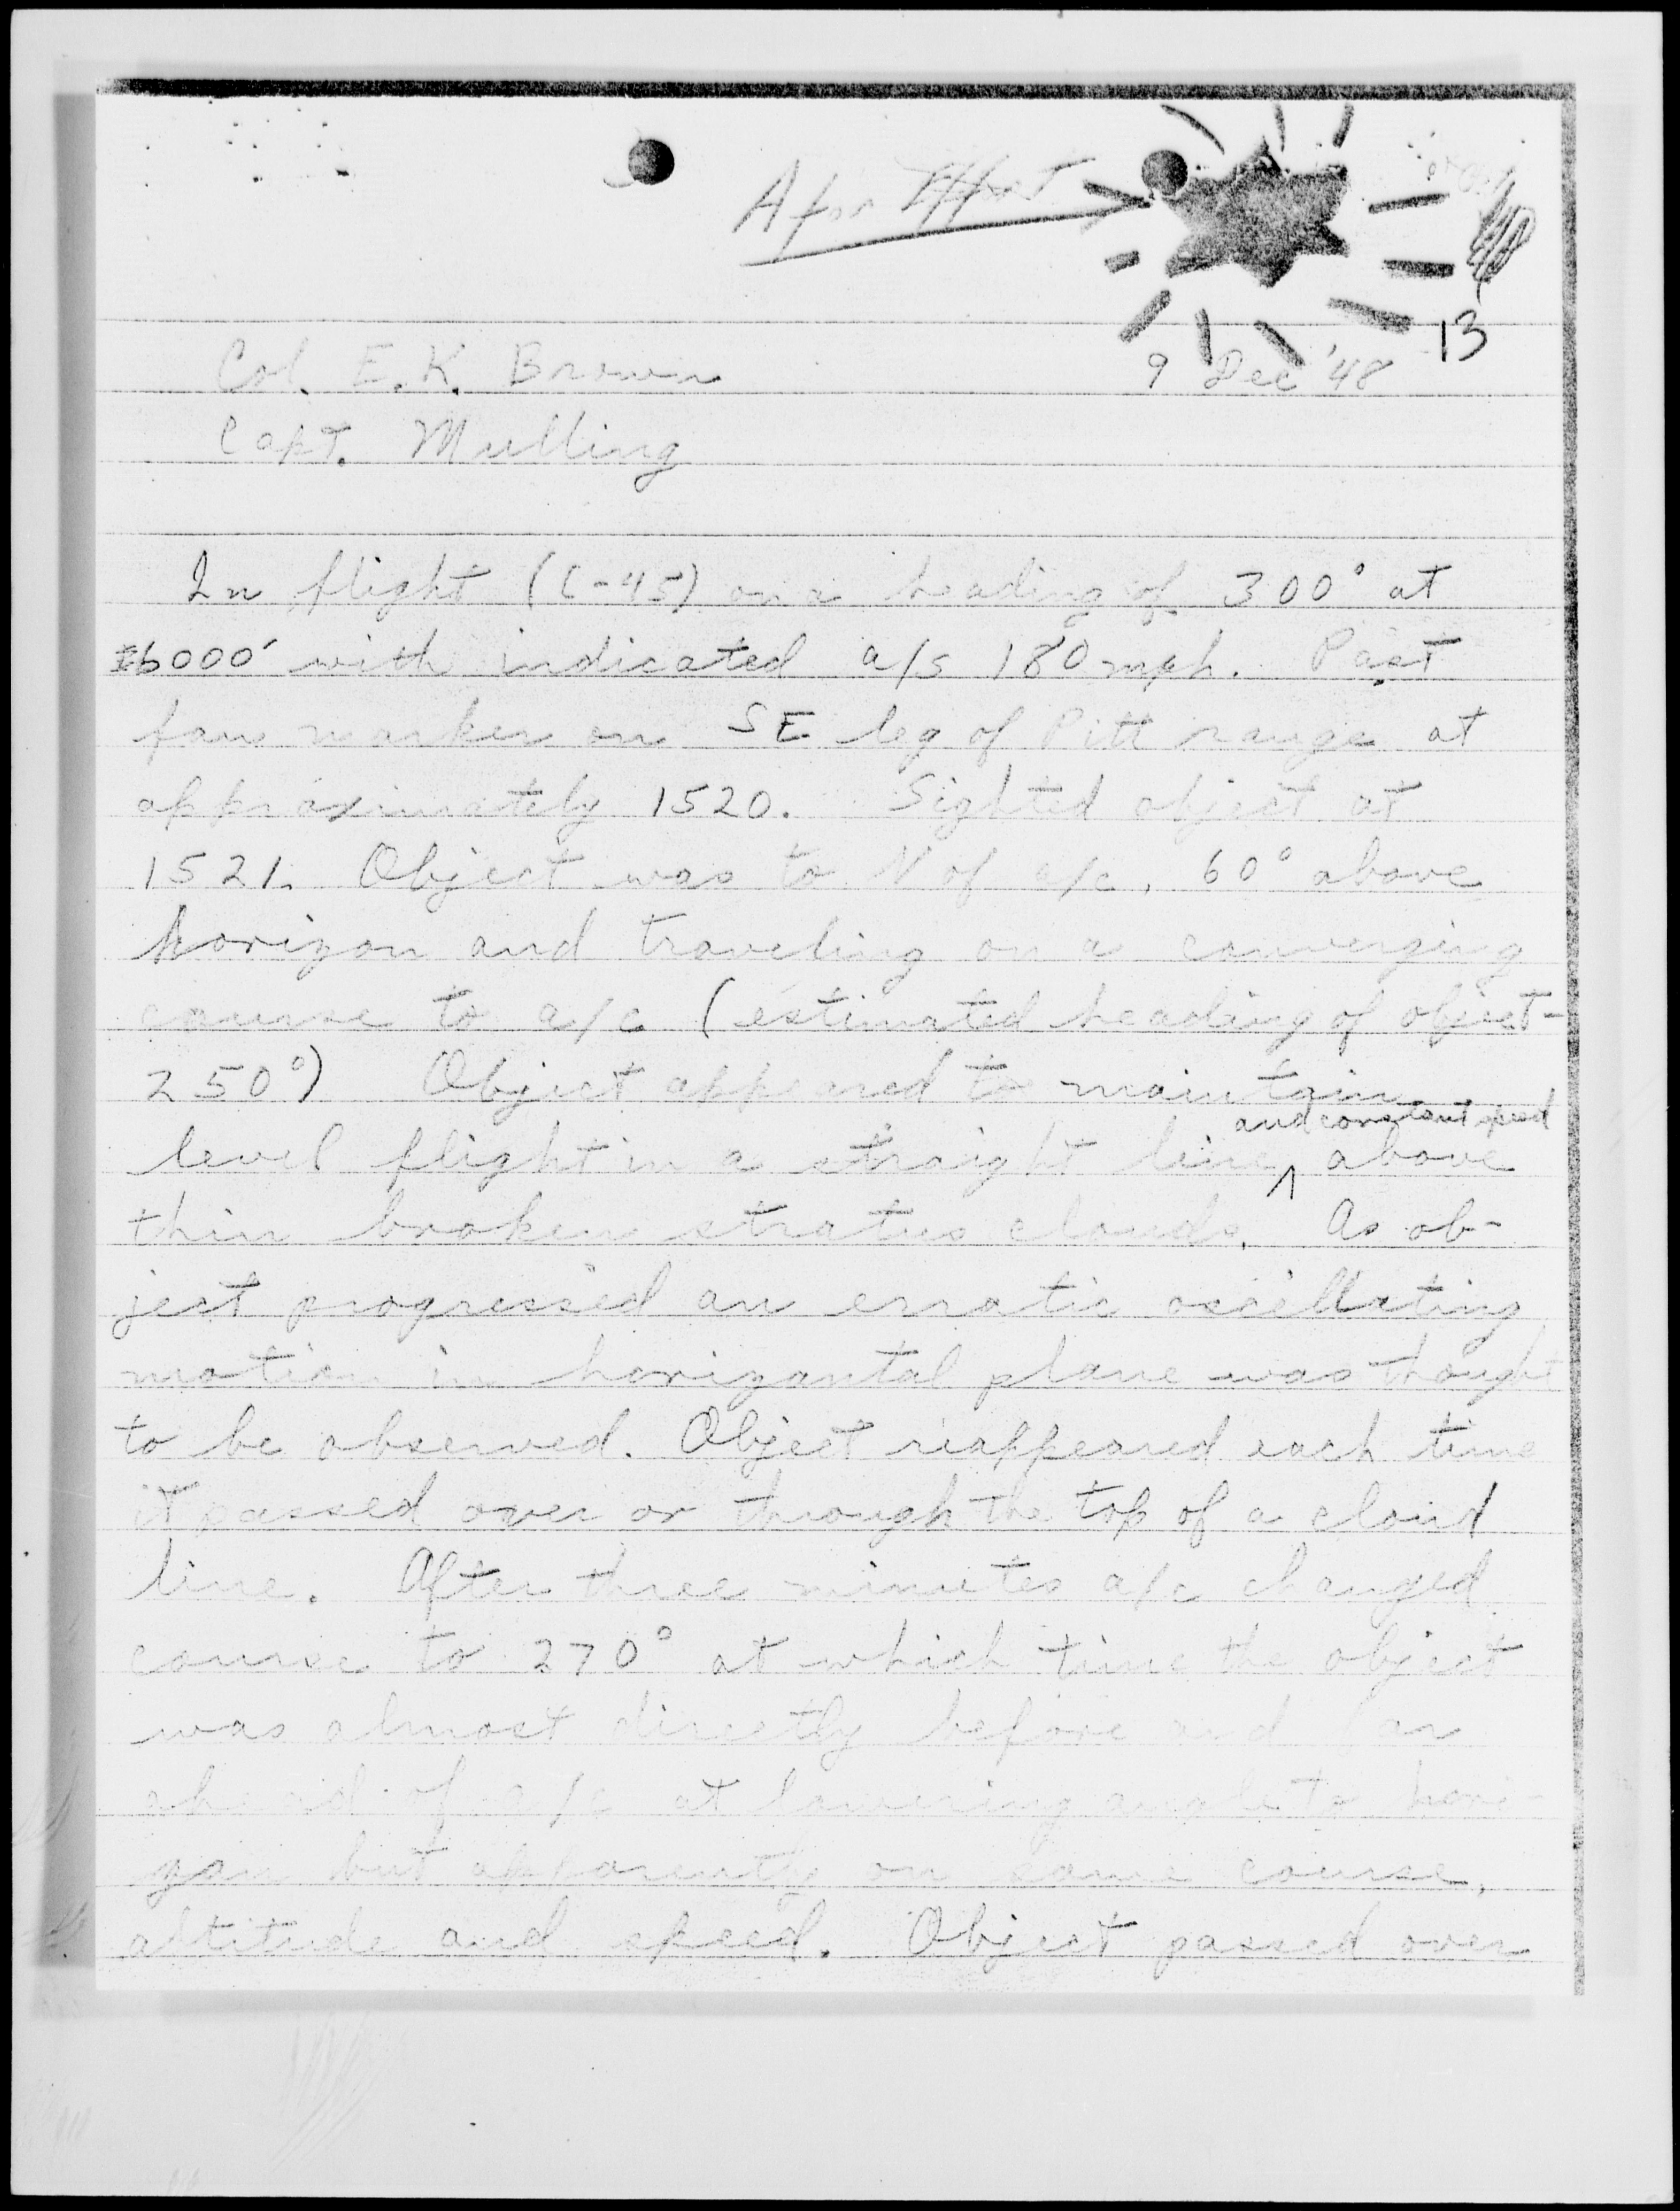 A for Effort
13
Col. E. K. Brown 9 Dec '48
Capt. Mulling
In flight (C-45) on a heading of 300° at
6000' with indicated a/s 180 mph. Past
fan marker on SE leg of Pitt range at
approximately 1520. Sighted object at
1521. Object was to N of a/c, 60° above
horizon and traveling on a converging
course to a/c (estimated heading of object -
250°) Object appeared to maintain
and constant speed
level flight in a straight line ^ above
thin broken stratus clouds. As ob-
ject progressed an erratic oscillating
motion in horizontal plane was thought
to be observed. Object reappeared each time
it passed over or through the top of a cloud
line. After three minutes a/c changed
course to 270° at which time the object
was almost directly before and far
ahead of a/c at lowering angle to hori-
zon but apparently on same course,
altitude and speed. Object passed over